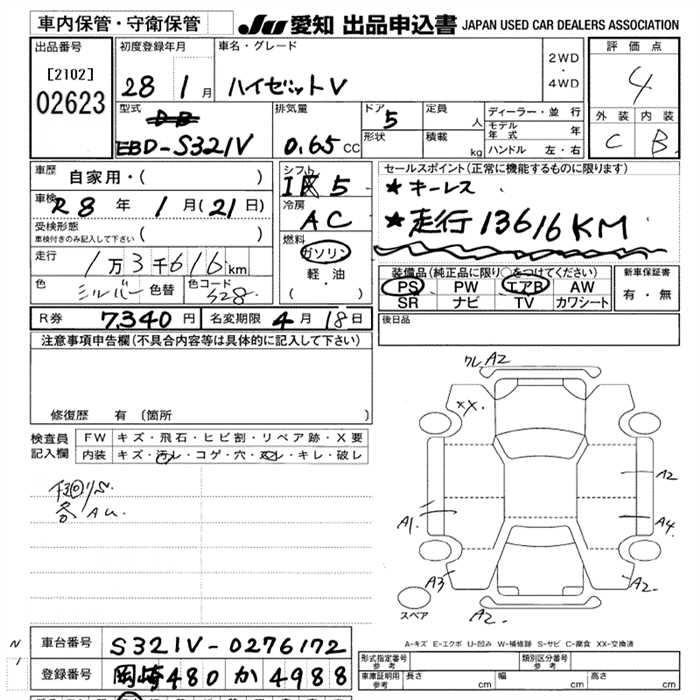 車内保管・守衛保管 JU 愛知 出品申込書 JAPAN USED CAR DEALERS ASSOCIATION
出品番号 [2102] 02623
初度登録年月 28 1月
車名・グレード ハイゼットV
2WD・4WD
評価点 4
外装 C 内装 B
型式 DB EBD-S321V
排気量 0.65 CC
ドア 5
形状
定員 人
積載 kg
ディーラー・並行
モデル年式 年
ハンドル 左・右
車歴 自家用・( )
車検 R8年 1月(21日)
受検形態 車検付きのみ記入して下さい ( )
走行 1万3千616km
色 シルバー 色替 色コード S28
シフト 5
冷房 AC
燃料 ガソリン
軽・油
( )
セールスポイント(正常に機能するものに限ります)
★キーレス
★走行13616KM
装備品(純正品に限り○をつけてください)
PS PW エアB AW
SR ナビ TV カワシート
新車保証書 有・無
R券 7,340円 名変期限 4月18日
後日品
注意事項申告欄(不具合内容等は具体的に記入して下さい)
修復歴 有(箇所 )
検査員記入欄
FW キズ・飛石・ヒビ割・リペア跡・X要
内装 キズ・汚レ・コゲ・穴・スレ・キレ・破レ
下回りS.
各AU.
ワレA2
XX.
A2
A1
A4
A3
A2
スペア
A2
A-キズ E-エクボ U-凹み W-補修跡 S-サビ C-腐食 XX-交換済
N
1
車台番号 S321V-0276172
登録番号 岡崎480か4988
形式指定番号 参考
類別区分番号 参考
車庫証明用 参考 長さ cm 幅 cm 高さ cm